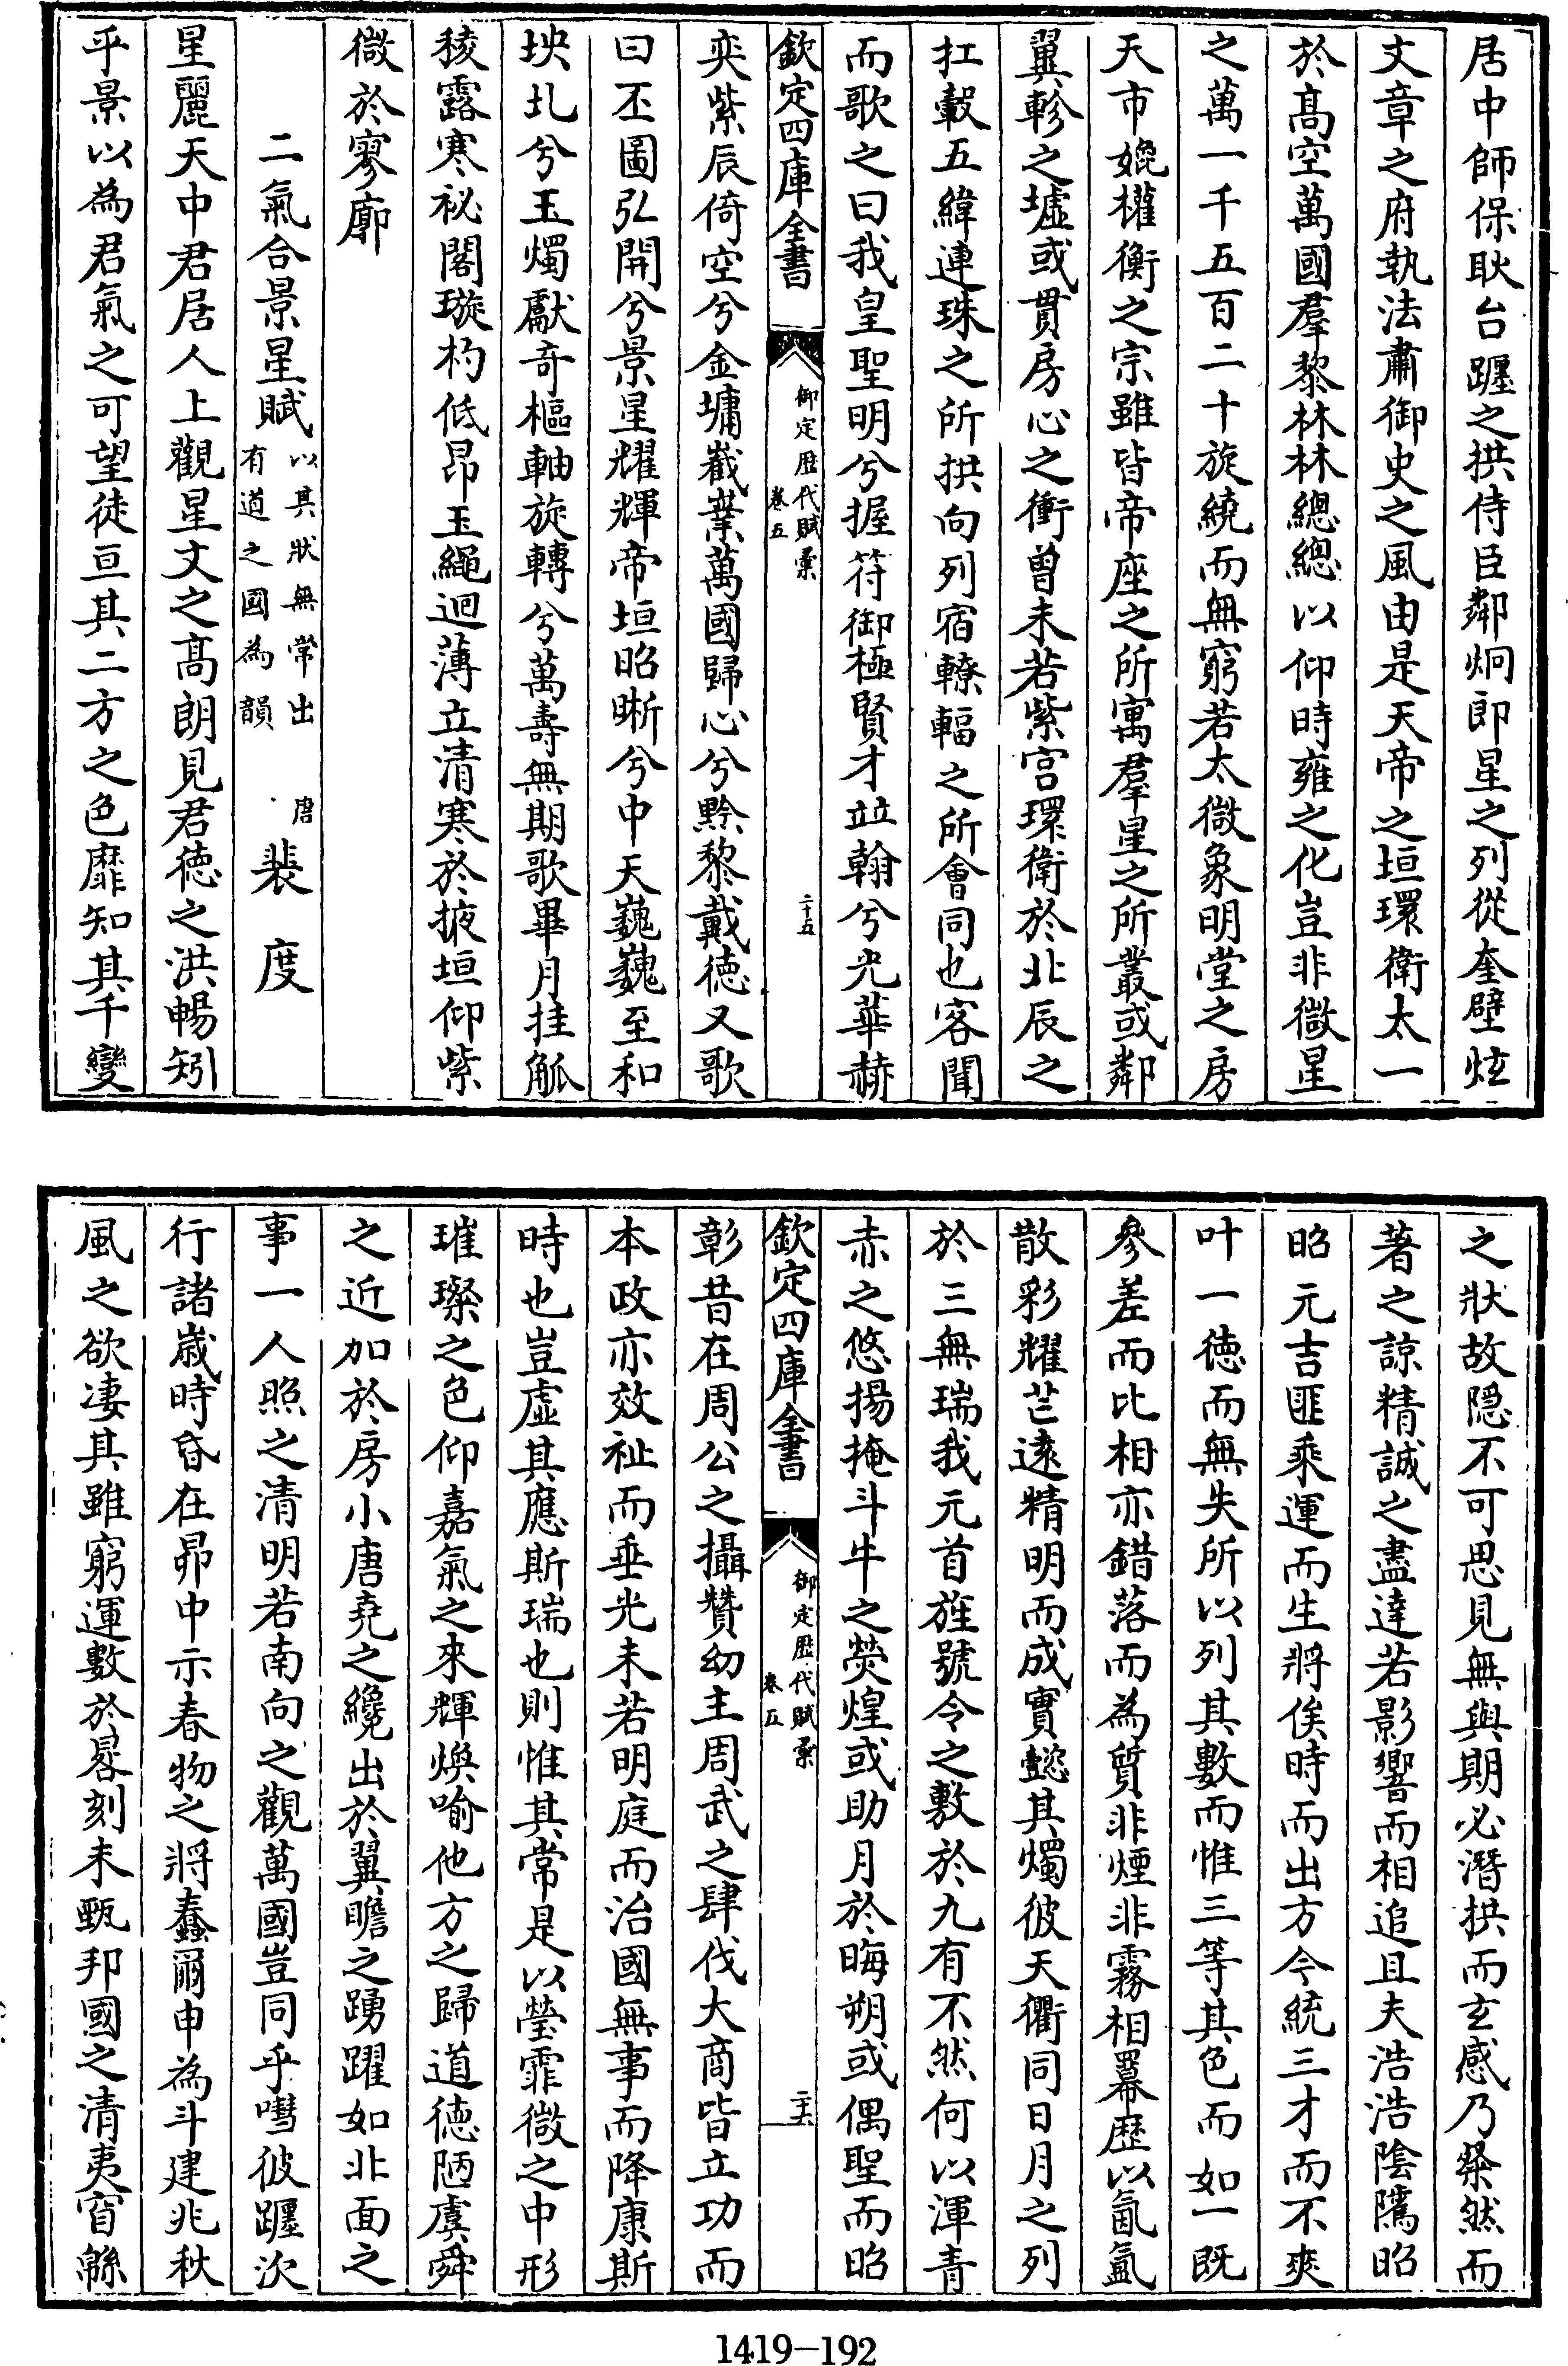 居中師保耿台躔之拱侍臣鄰炯郎星之列從奎壁炫
文章之府執法肅御史之風由是天帝之垣環衛太一
於髙空萬國羣黎林林總總以仰時雍之化豈非微星
之萬一千五百二十旋繞而無窮若太微象明堂之房
天市媲權衡之宗雖皆帝座之所寓羣星之所叢或鄰
翼軫之墟或貫房心之衝曾未若紫宫環衛於北辰之
扛轂五緯連珠之所拱向列宿轑輻之所會同也客聞
而歌之曰我皇聖明兮握符御極賢才竝翰兮光華赫
欽定四庫全書
御定歴代賦彚
卷五
二十五
奕紫辰倚空兮金墉嶻嶪萬國歸心兮黔黎戴徳又歌
曰丕圖弘開兮景星耀輝帝垣昭晣兮中天巍巍至和
坱圠兮玉燭獻奇樞軸旋轉兮萬壽無期歌畢月挂觚
稜露寒祕閣璇杓低昂玉繩迴薄立清寒於掖垣仰紫
微於寥廓
二氣合景星賦以其狀無常出有道之國為韻 唐裴度
星麗天中君居人上觀星文之髙朗見君徳之洪暢矧
乎景以為君氣之可望徒亘其二方之色靡知其千變
之狀故隠不可思見無與期必潛拱而玄感乃粲然而
著之諒精誠之盡達若影響而相追且夫浩浩陰隲昭
昭元吉匪乘運而生將俟時而出方今統三才而不爽
叶一徳而無失所以列其數而惟三等其色而如一既
參差而比相亦錯落而為質非煙非霧相羃歴以氤氲
散彩耀芒逺精明而成實懿其燭彼天衢同日月之列
於三無瑞我元首旌號令之敷於九有不然何以渾青
赤之悠揚掩斗牛之熒煌或助月於晦朔或偶聖而昭
欽定四庫全書
御定歴代賦彚
卷五
二十六
彰昔在周公之攝贊幼主周武之肆伐大商皆立功而
本政亦效祉而垂光未若明庭而治國無事而降康斯
時也豈虚其應斯瑞也則惟其常是以瑩霏微之中形
璀璨之色仰嘉氣之來輝煥喻他方之歸道徳陋虞舜
之近加於房小唐堯之纔出於翼瞻之踴躍如北面之
事一人照之清明若南向之觀萬國豈同乎嘒彼躔次
行諸嵗時昏在昴中示春物之將蠢爾申為斗建兆秋
風之欲淒其雖窮運數於晷刻未甄邦國之清夷窅緜
1419-192